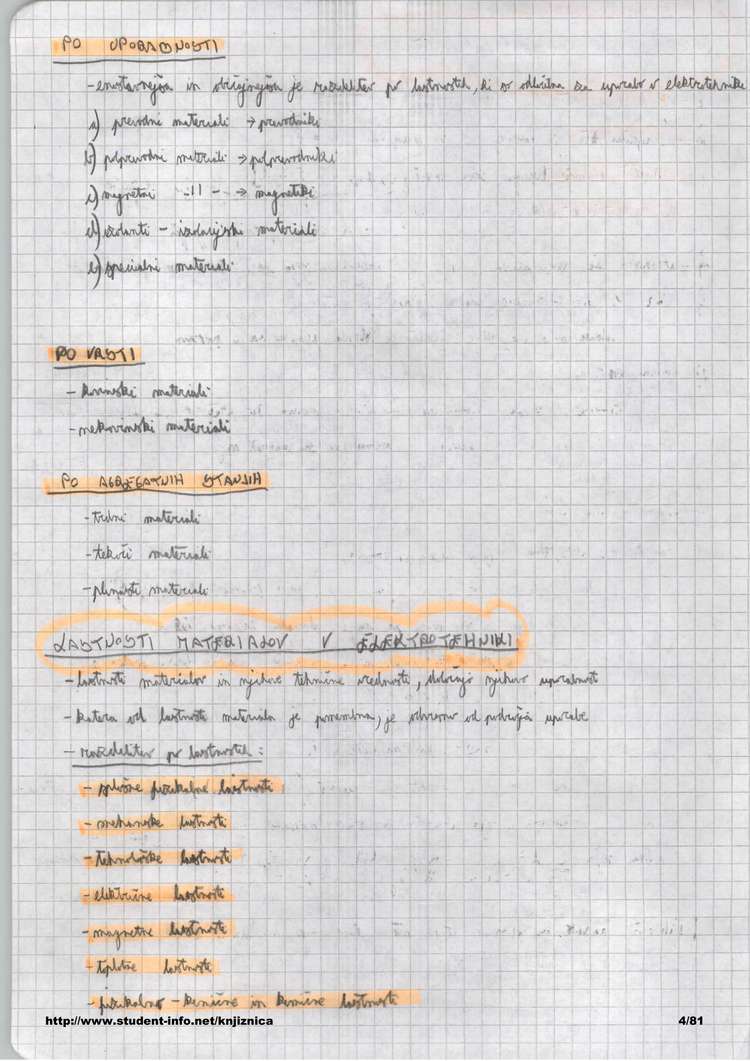 PO UPORABNOSTI
- enostavnejša in običajnejša je razdelitev po lastnostih, ki so odločilna za uporabo v elektrotehnike
a) prevodni materiali → prevodniki
b) polprevodni materiali → polprevodniki
c) magnetni -||- → magnetiki
d) izolanti - izolacijski materiali
e) specialni materiali
PO VRSTI
- kovinski materiali
- nekovinski materiali
PO AGREGATNIH STANJIH
- trdni materiali
- tekoči materiali
- plinasti materiali
LASTNOSTI MATERIALOV V ELEKTROTEHNIKI
- lastnosti materialov in njihove tehnične vrednosti, določajo njihovo uporabnost
- katera od lastnosti materiala je pomembna, je odvisno od področja uporabe
- razdelitev po lastnostih:
- splošne fizikalne lastnosti
- mehanske lastnosti
- tehnološke lastnosti
- električne lastnosti
- magnetne lastnosti
- toplotne lastnosti
- fizikalno - kemične in kemične lastnosti
http://www.student-info.net/knjiznica 4/81